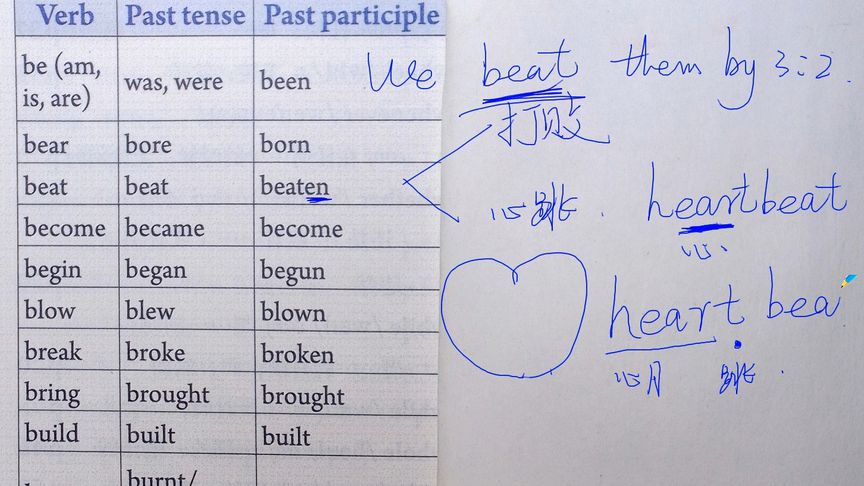 Verb Past tense Past participle
be (am, is, are) was, were been
bear bore born
beat beat beaten
become became become
begin began begun
blow blew blown
break broke broken
bring brought brought
build built built
burnt/
We beat them by 3:2.
打败
心跳. heartbeat
心.
heart bea
心 跳.